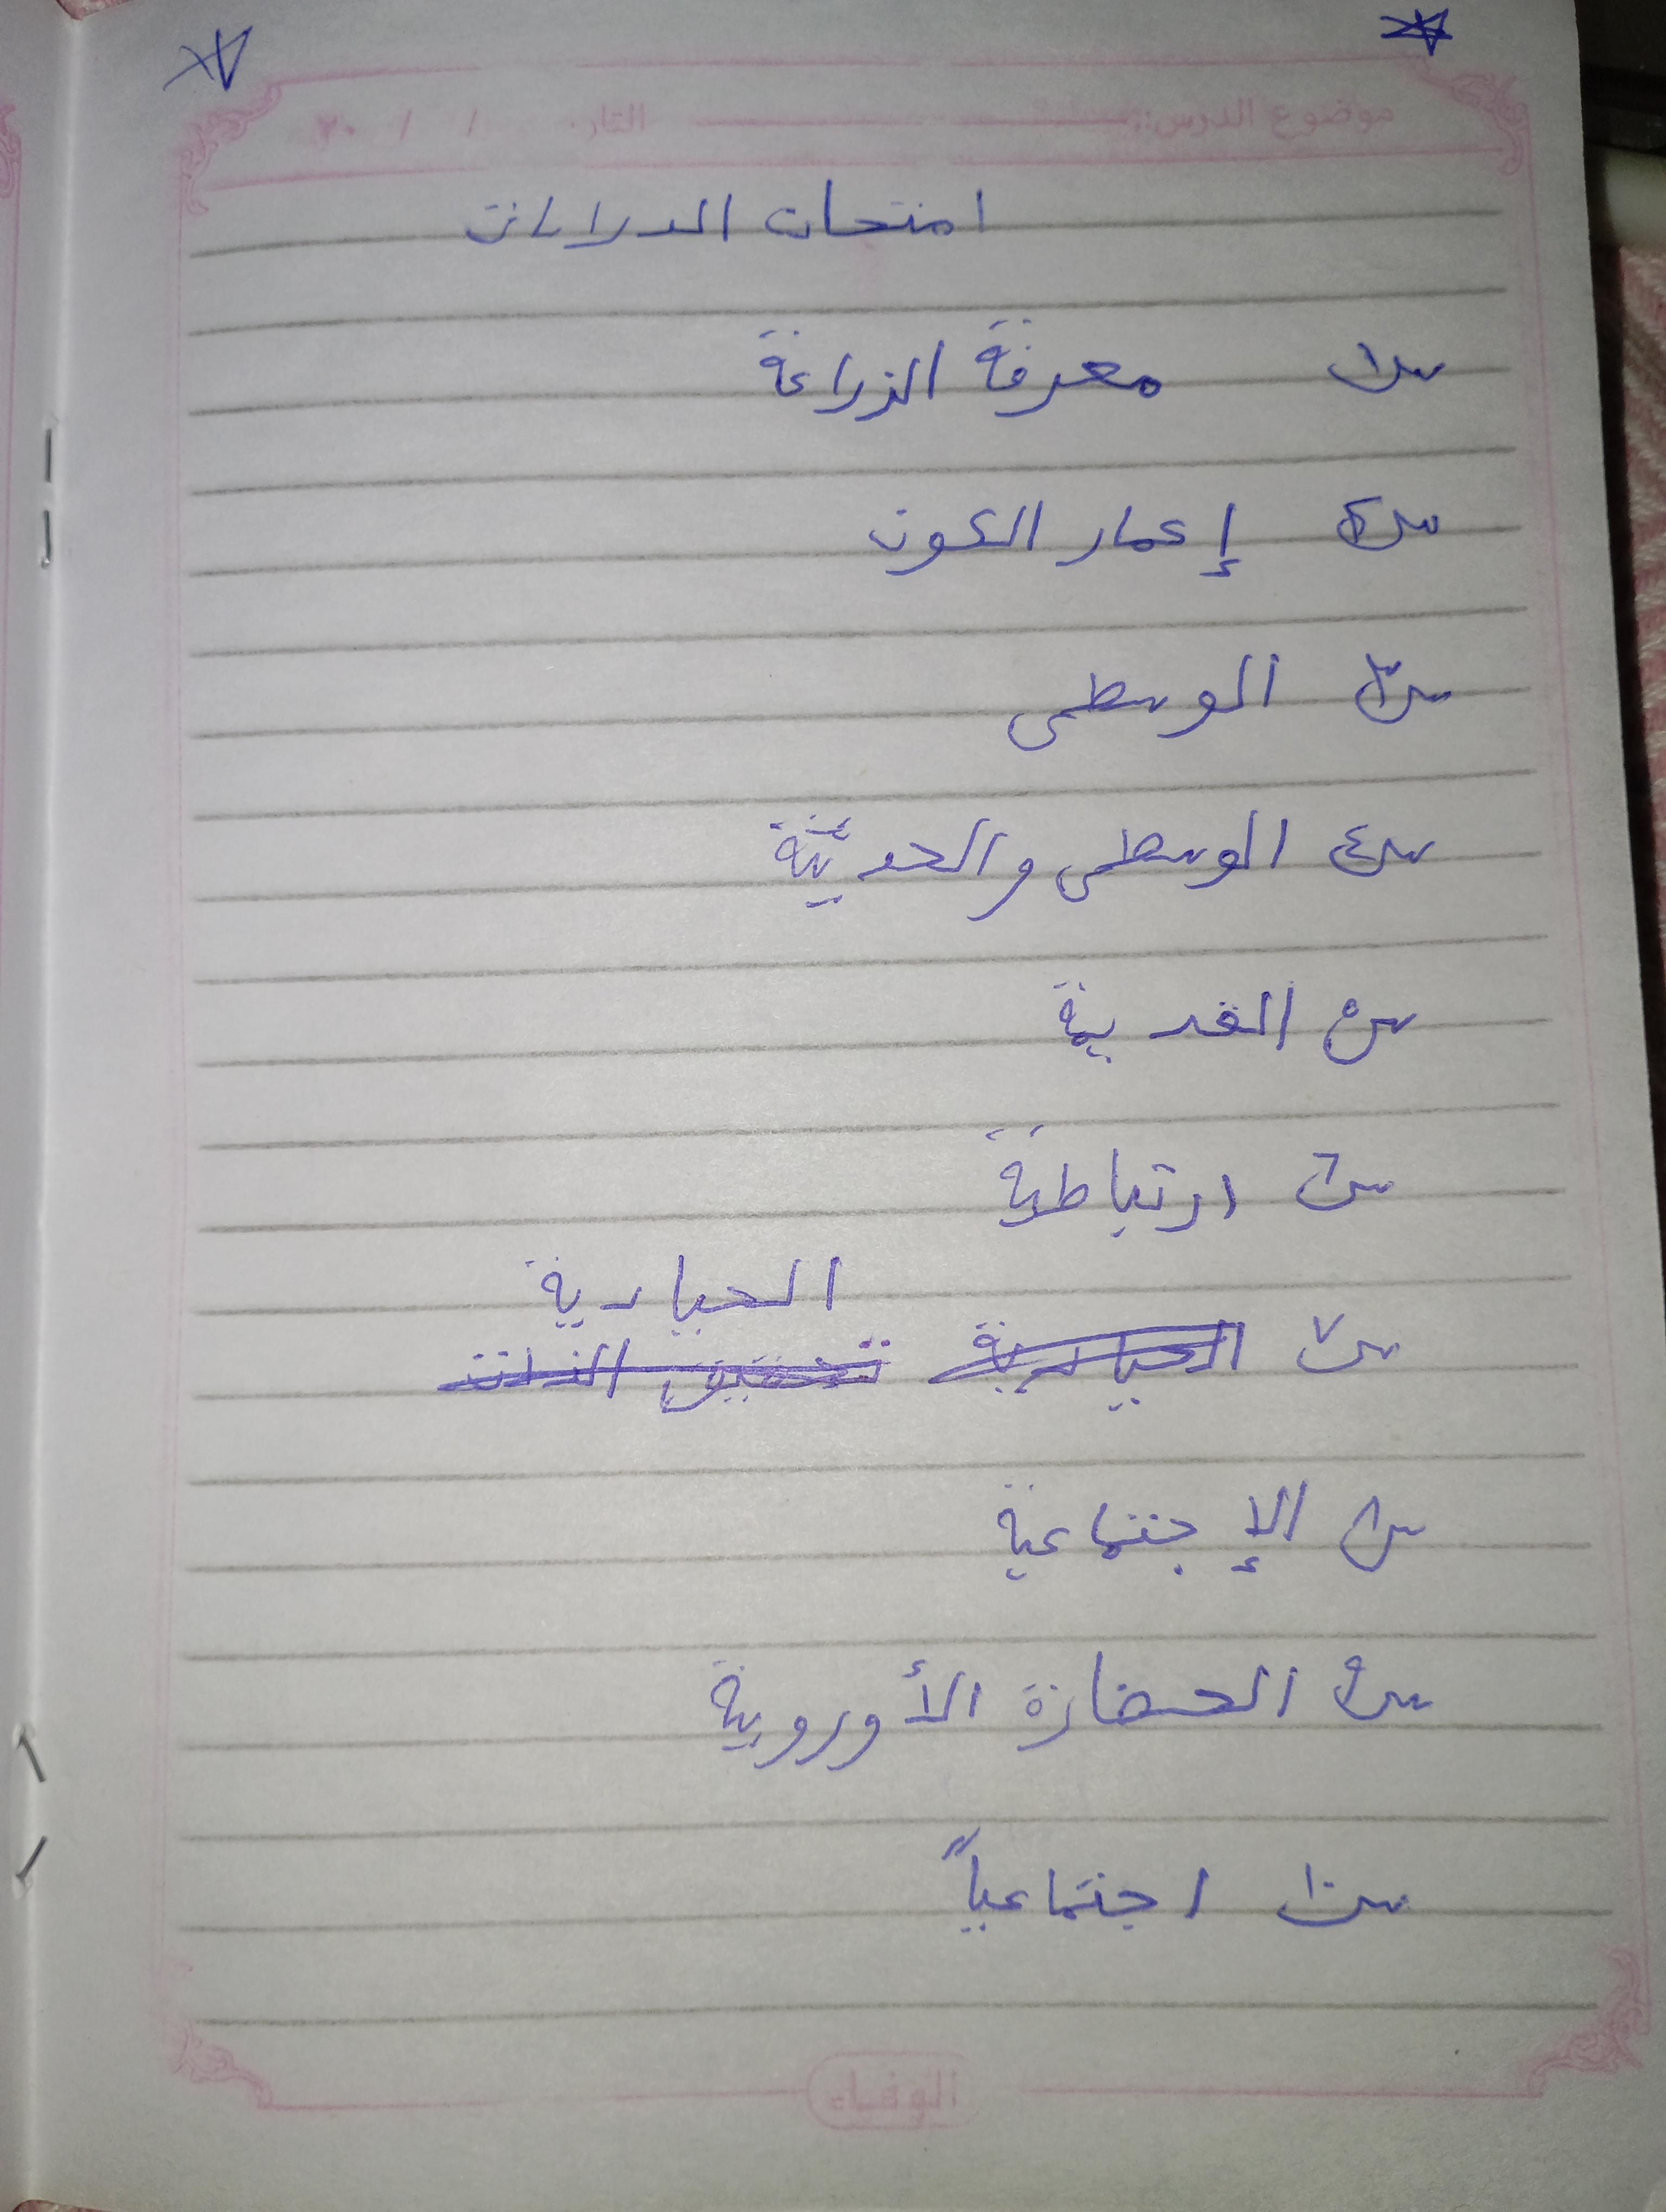 موضوع الدرس: التاريخ / / ٢٠
امتحان الدراسات
س١ معرفة الزراعة
س٢ إعمار الكون
س٣ الوسطى
س٤ الوسطى والحديثة
س٥ القديمة
س٦ ارتباطية
الحيادية
س٧ الحيادية تحقيق الذات
س٨ الإجتماعية
س٩ الحضارة الأوروبية
س١٠ اجتماعياً
الوفاء